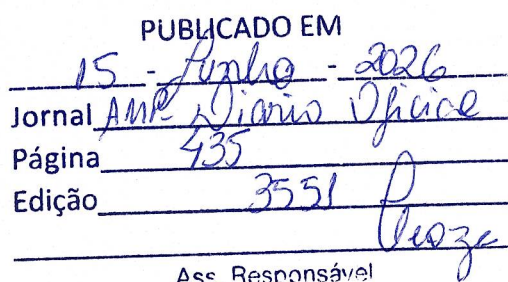 PUBLICADO EM
15 - Junho - 2026
Jornal AMP - Diário Oficial
Página 435
Edição 3551
Ass. Responsável